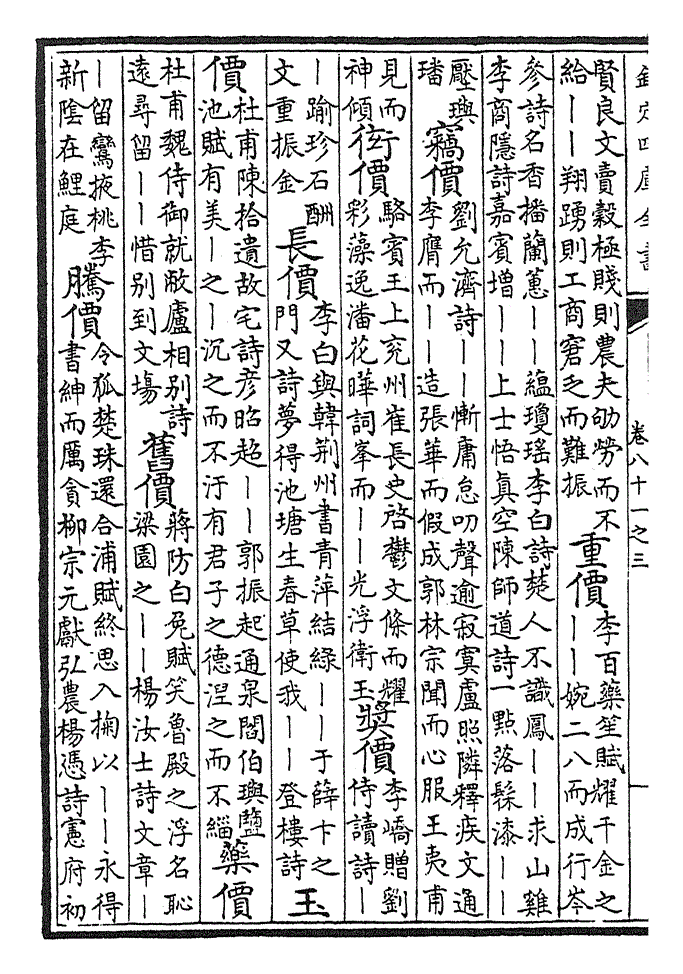 欽定四庫全書
卷八十一之三
賢良文賣穀極賤則農夫劬勞而不
給——翔踴則工商窘乏而難振
重價
李百藥笙賦耀千金之
——婉二八而成行岑
參詩名香播蘭蕙——蘊瓊瑤李白詩楚人不識鳳——求山雞
李商隱詩嘉賓增——上士悟真空陳師道詩一點落髹漆——
壓璵
璠
竊價
劉允濟詩——慚庸怠叨聲逾寂寞盧照隣釋疾文通
李膺而——造張華而假成郭林宗聞而心服王夷甫
見而
神傾
衒價
駱賓王上兗州崔長史啓鬱文條而耀
彩藻逸潘花曄詞峯而——光浮衛玉
奬價
李嶠贈劉
侍讀詩—
—踰珍石酬
文重振金
長價
李白與韓荆州書青萍結綠——于薛卞之
門又詩夢得池塘生春草使我——登樓詩
玉
價
杜甫陳拾遺故宅詩彥昭超——郭振起通泉閻伯璵鹽
池賦有美—之—沉之而不汙有君子之德涅之而不緇
藥價
杜甫魏侍御就敝廬相別詩
遠尋留——惜別到文場
舊價
蔣防白兔賦笑魯殿之浮名恥
梁園之——楊汝士詩文章—
—留鸞掖桃李
新陰在鯉庭
騰價
令狐楚珠還合浦賦終思入掬以——永得
書紳而厲貪柳宗元獻弘農楊憑詩憲府初